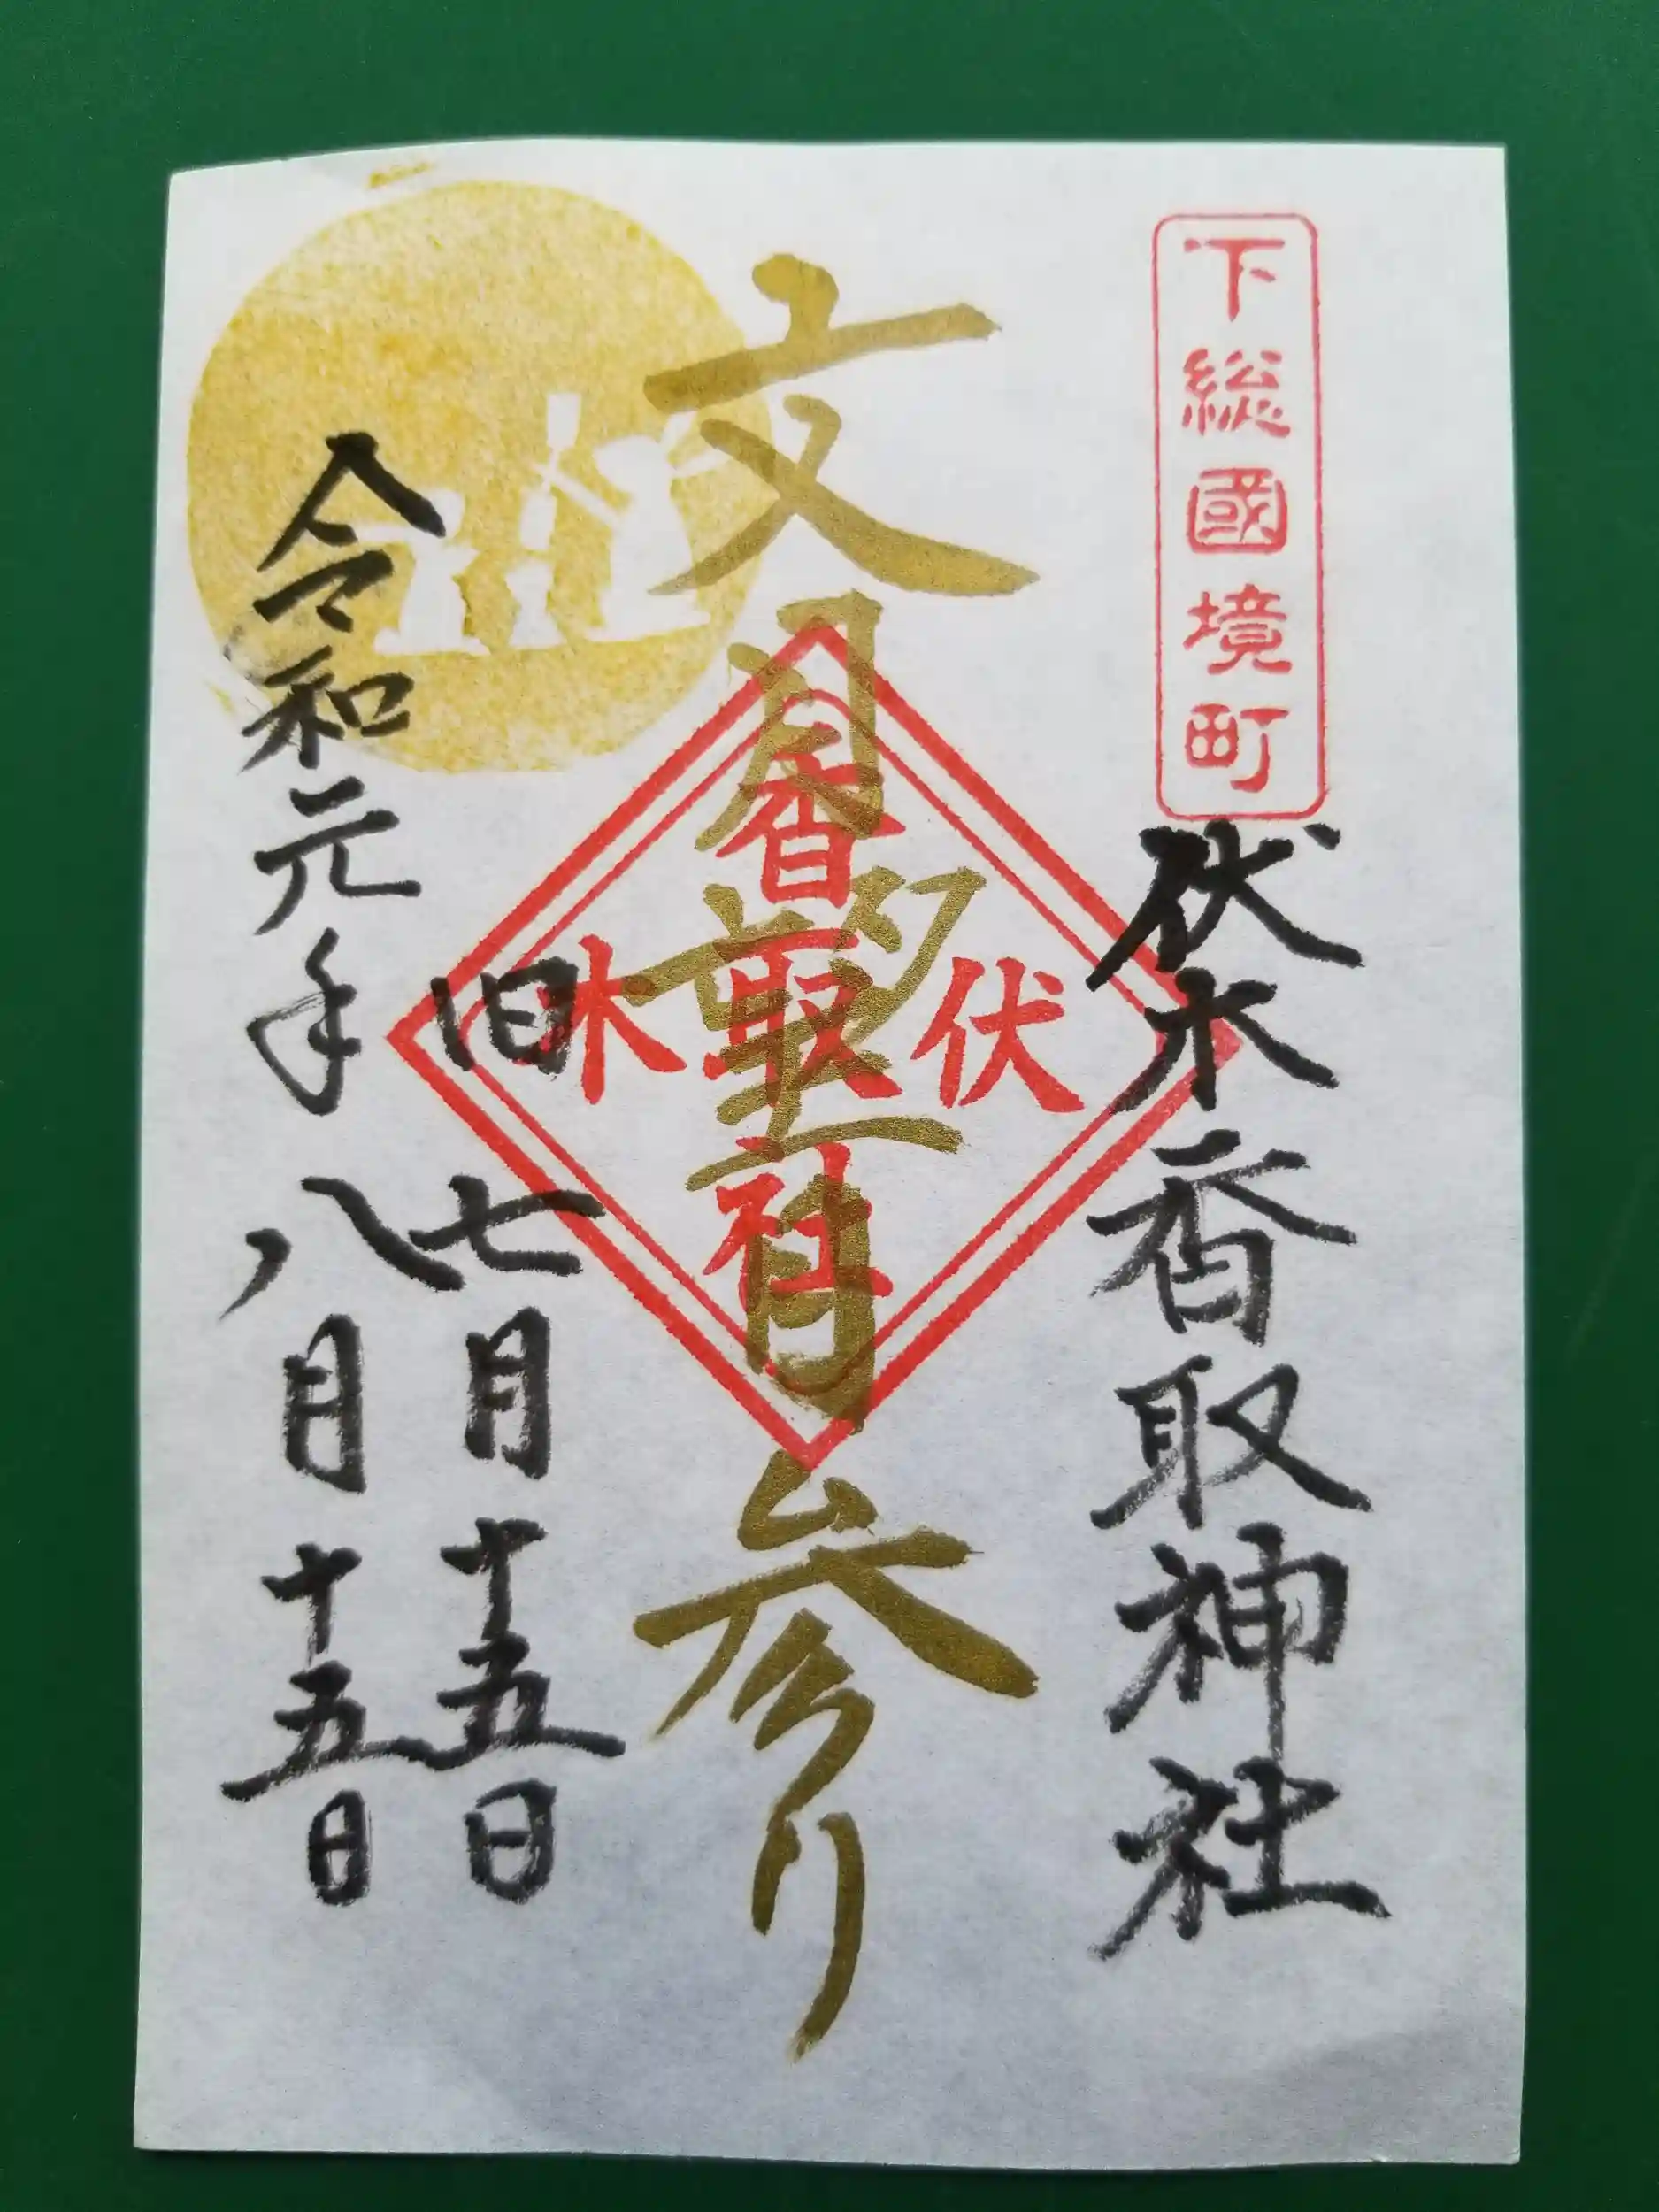 下総國境町
伏木香取神社
文月望月参り
伏木
香取社
旧七月十五日
令和元年八月十五日